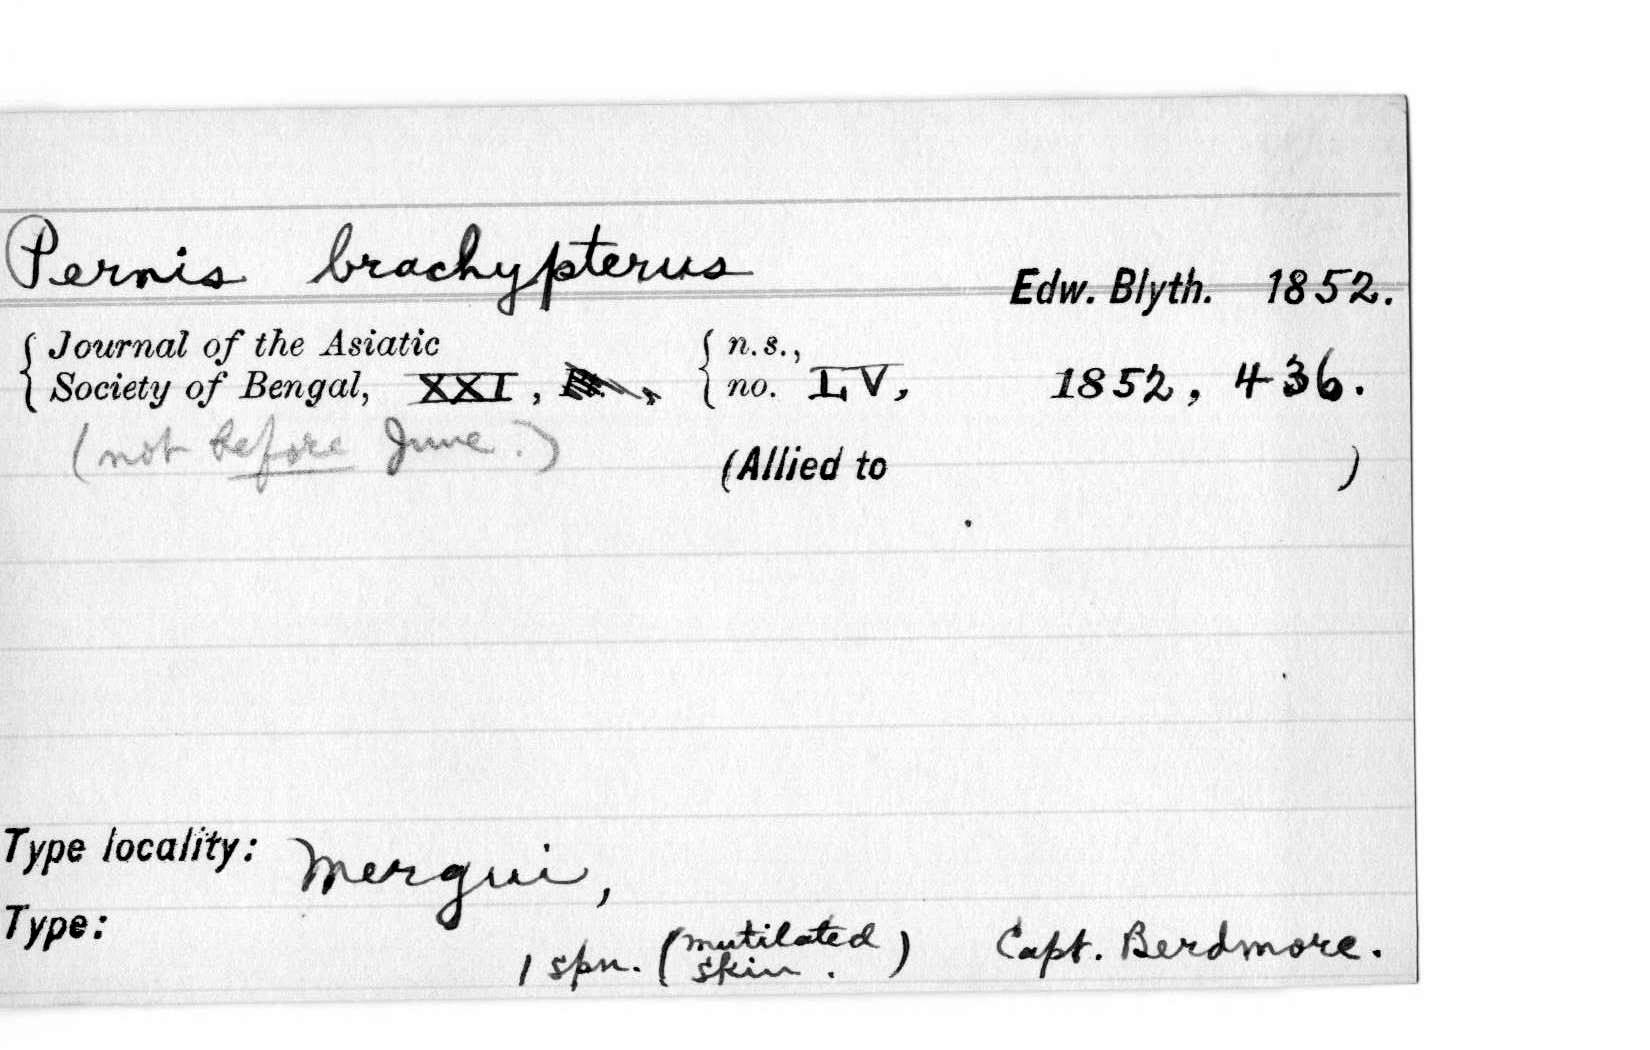 Pernis brachypterus Edw. Blyth. 1852.
Journal of the Asiatic n.s.,
Society of Bengal, XXI, no. LV, 1852, 436.
(not before June.)
(Allied to )
Type locality: Mergui,
Type:
1 spn. (mutilated skin.) Capt. Berdmore.